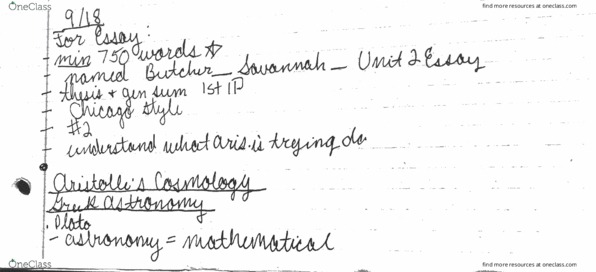 OneClass
find more resources at oneclass.com
9/18
For Essay:
- min 750 words ☆
- named Butcher_Savannah_Unit 2 Essay
- thesis + gen sum 1st ¶
- Chicago Style
- #2
- understand what Aris. is trying do
Aristotle's Cosmology
Greek Astronomy
. Plato
- astronomy = mathematical
OneClass
find more resources at oneclass.com